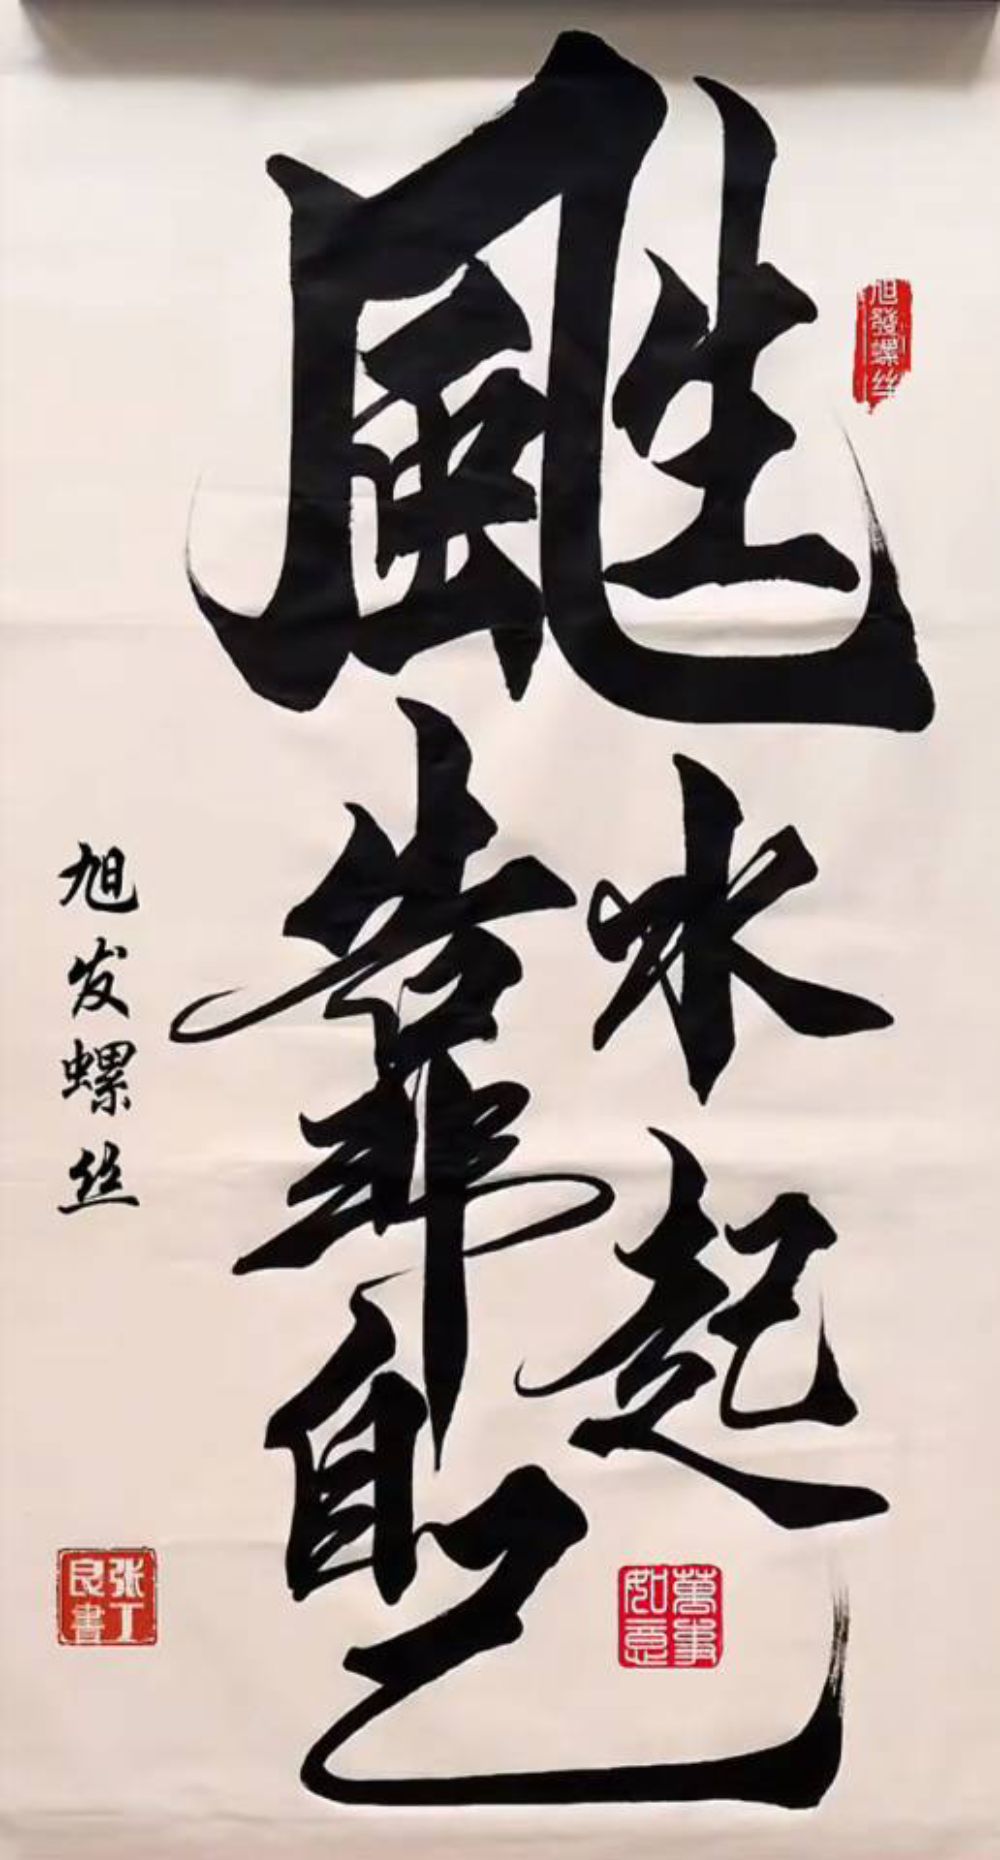 風生水起
靠自己
旭发螺丝
旭發螺丝
萬事如意
张丁良書